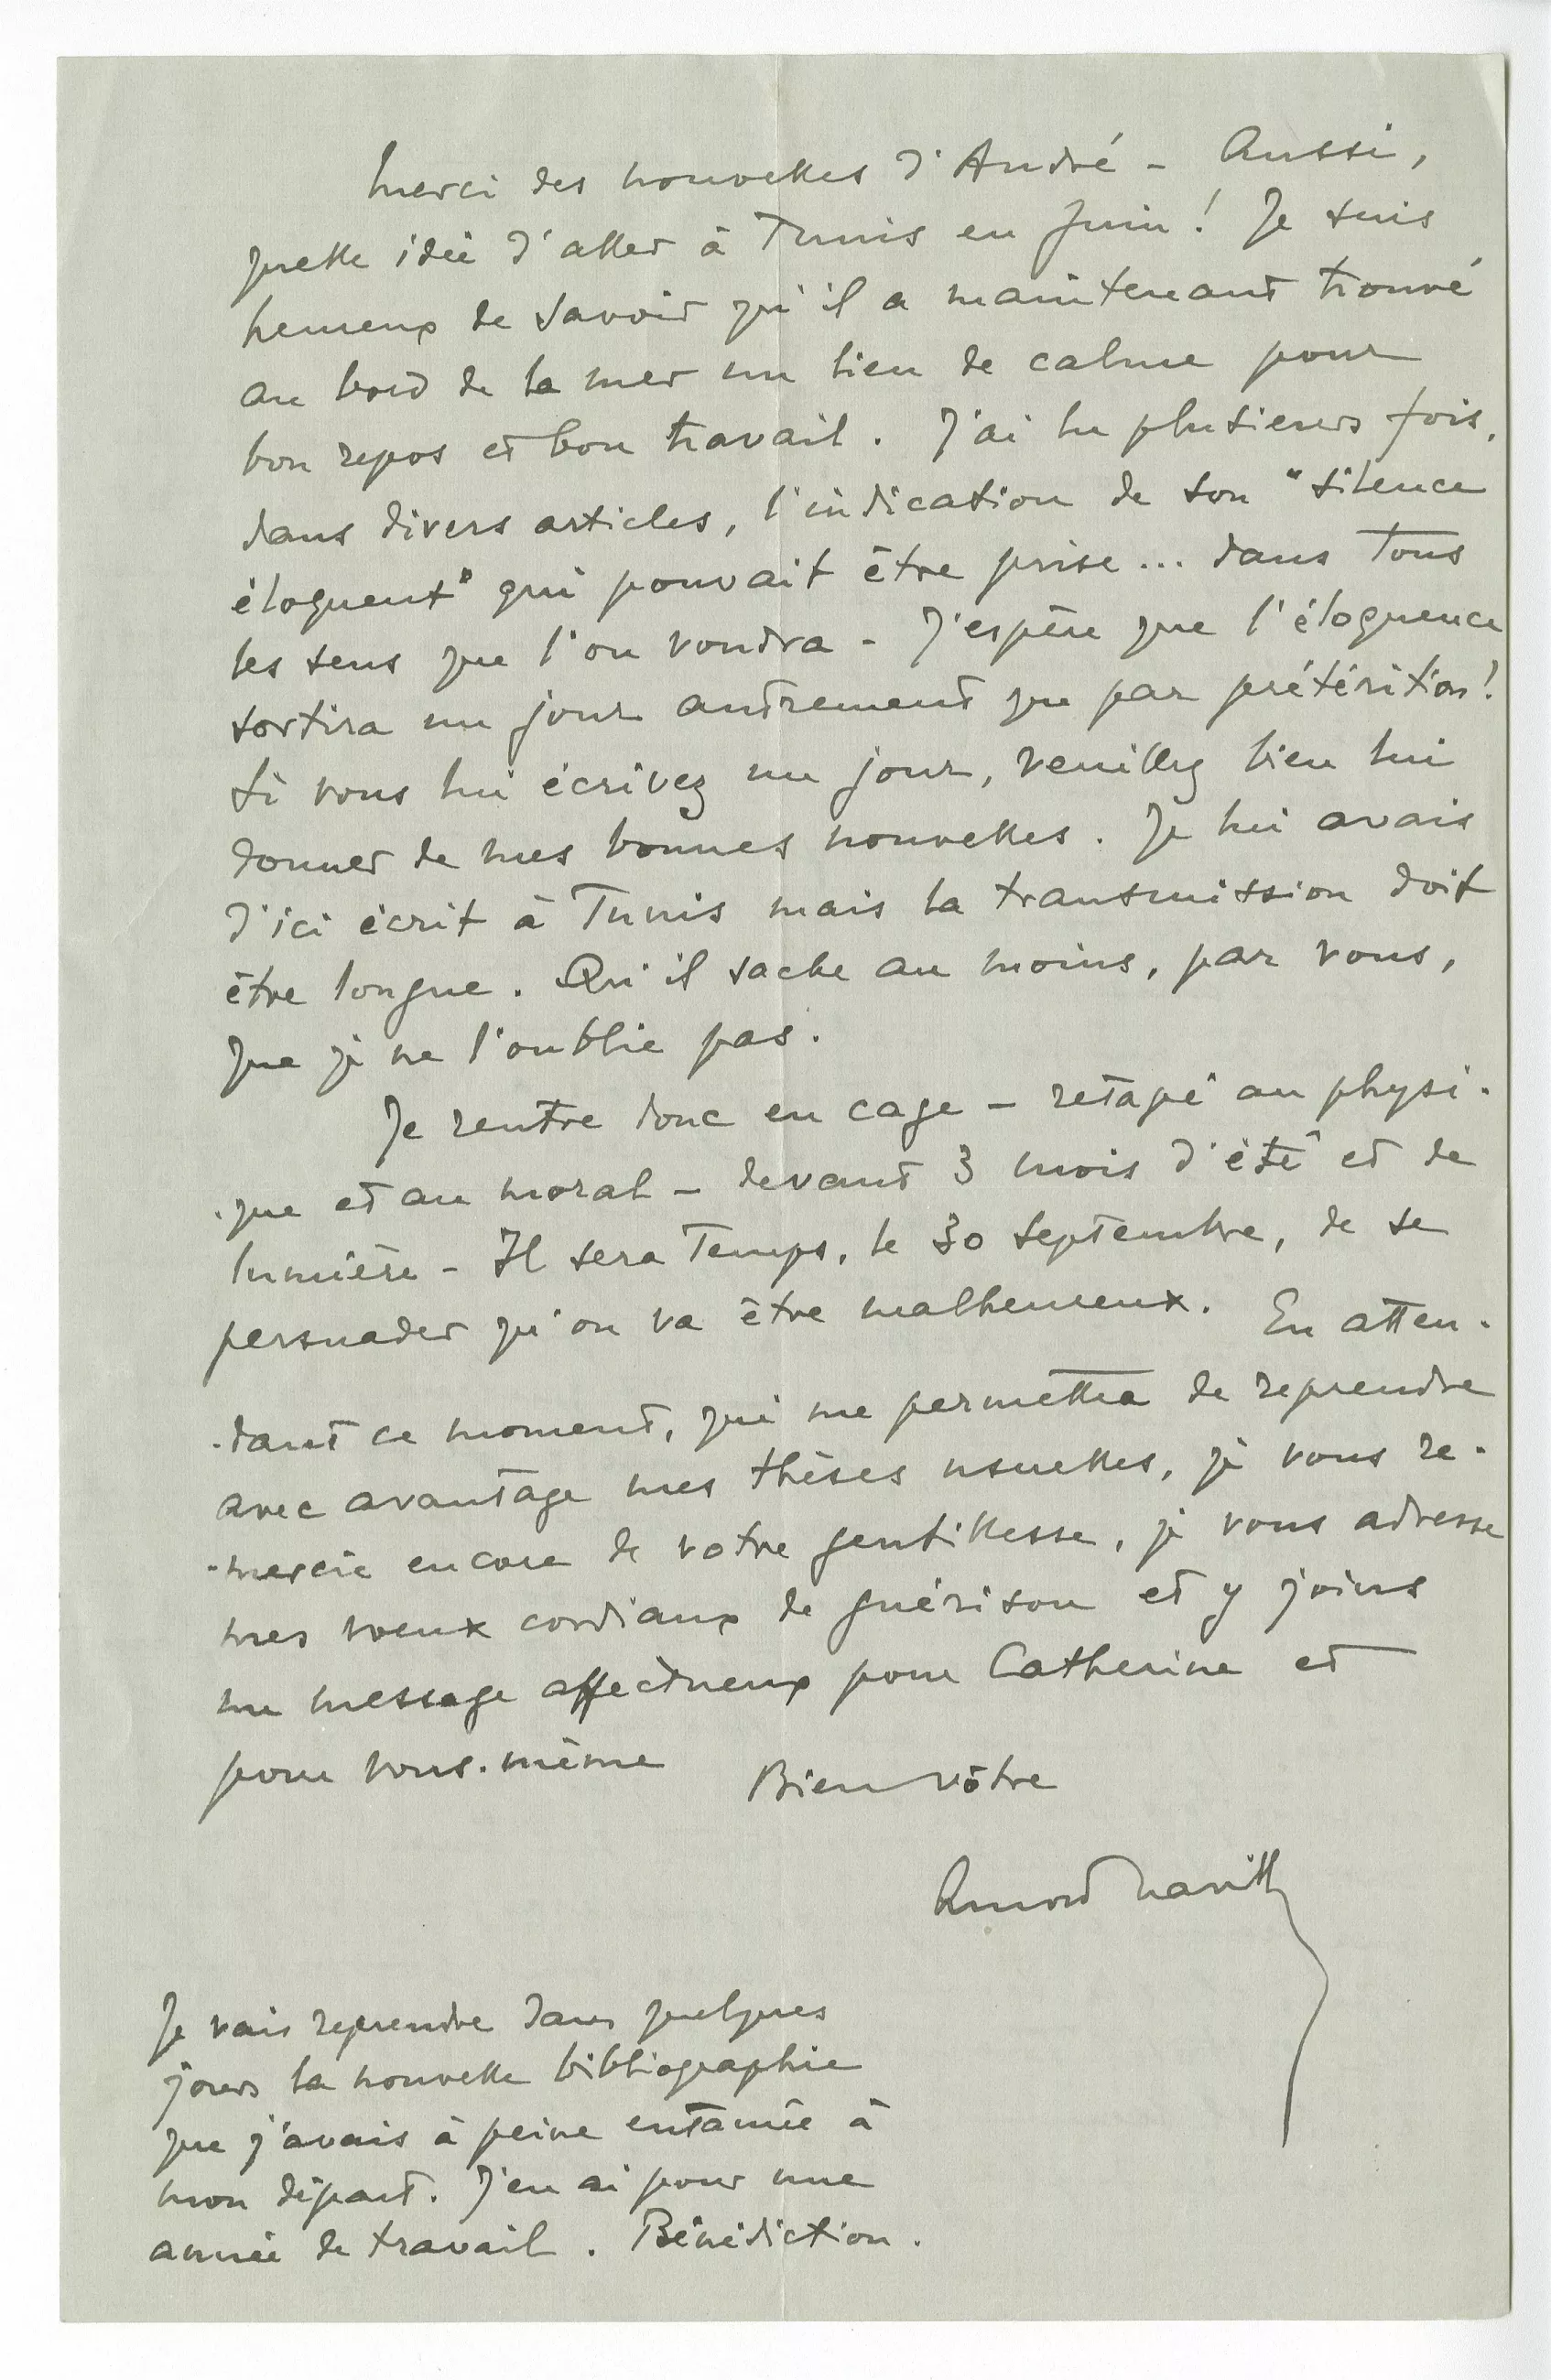 Merci des nouvelles d'André - Aussi,
quelle idée d'aller à Tunis en Juin ! Je suis
heureux de savoir qu'il a maintenant trouvé
au bord de la mer un lieu de calme pour
bon repos et bon travail. J'ai lu plusieurs fois,
dans divers articles, l'indication de son "silence
éloquent" qui pouvait être prise... dans tous
les sens que l'on voudra - J'espère que l'éloquence
sortira un jour autrement que par prétérition !
Si vous lui écrivez un jour, veuillez bien lui
donner de mes bonnes nouvelles. Je lui avais
d'ici écrit à Tunis mais la transmission doit
être longue. Qu'il sache au moins, par vous,
que je ne l'oublie pas.
Je rentre donc en cage - retapé au physi-
-que et au moral - devant 3 mois d'été et de
lumière - Il sera temps, le 30 septembre, de se
persuader qu'on va être malheureux. En atten-
-dant ce moment, qui me permettra de reprendre
avec avantage mes thèses usuelles, je vous re-
-mercie encore de votre gentillesse, je vous adresse
mes voeux cordiaux de guérison et y joins
un message affectueux pour Catherine et
pour vous-même
Bien vôtre
Arnold Naville
Je vais reprendre dans quelques
jours la nouvelle bibliographie
que j'avais à peine entamée à
mon départ. J'en ai pour une
année de travail. Bénédiction.